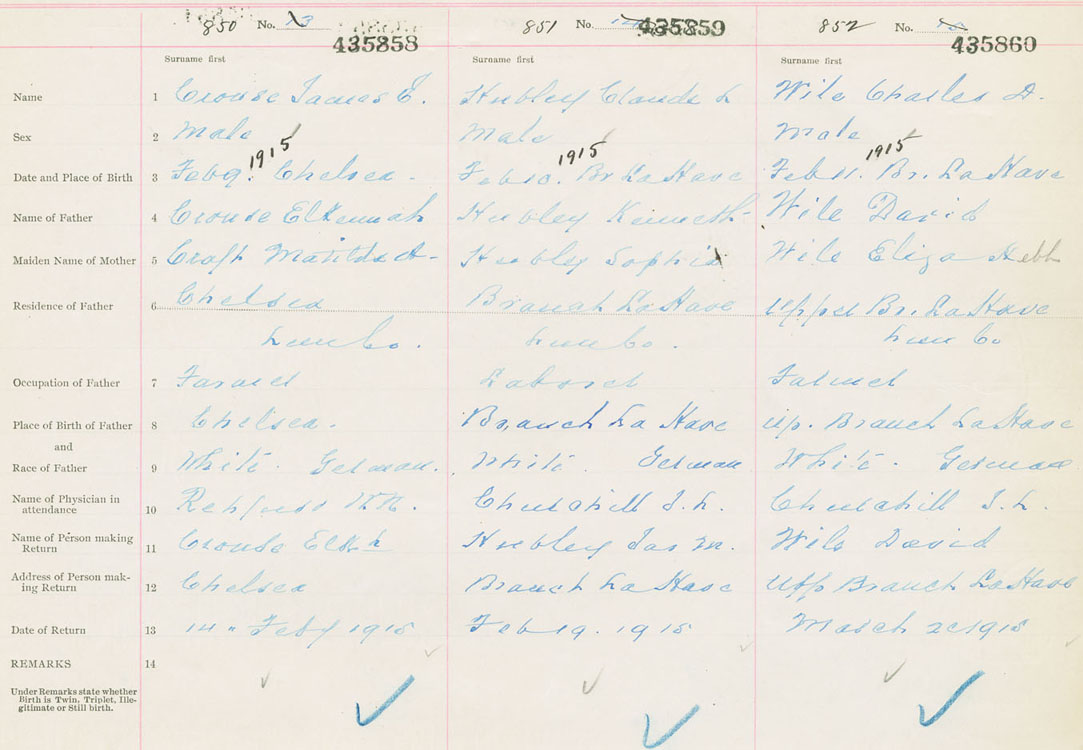 850 No. 435858
851 No. 435859
852 No. 435860
Surname first Surname first Surname first
Name 1 Crouse James E. Hubley Claude L Wile Charles A.
Sex 2 Male Male Male
1915 1915 1915
Date and Place of Birth 3 Feb 9. Chelsea. Feb 10. Br. LaHave Feb 11. Br. LaHave
Name of Father 4 Crouse Elkennah Hubley Kenneth Wile David
Maiden Name of Mother 5 Craft Matilda A Hubley Sophia Wile Eliza Hebb
Residence of Father 6 Chelsea Branch LaHave Upper Br. LaHave
Lun Co. Lun Co. Lun Co
Occupation of Father 7 Farmer Laborer Farmer
Place of Birth of Father 8 Chelsea. Branch La Have Up. Branch LaHave
and
Race of Father 9 White. German. White. German White. German
Name of Physician in
attendance 10 Churchill J. L. Churchill J. L.
Name of Person making
Return 11 Crouse Elk'h Hubley Jas M. Wile David
Address of Person mak-
ing Return 12 Chelsea Branch LaHave Upp Branch LaHave
Date of Return 13 14 " Feby 1915 Feb 19. 1915 March 2 1915
REMARKS 14
Under Remarks state whether
Birth is Twin, Triplet, Ille-
gitimate or Still birth.